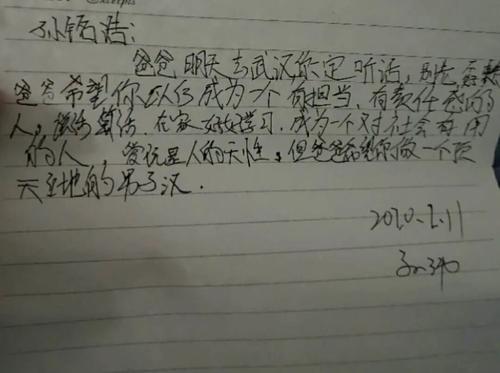 孙铭浩:
爸爸明天去武汉你定听话, 别
爸爸希望你以后成为一个有担当、有责任感的
人, 说话算话. 在家好好学习, 成为一个对社会有用
的人, 爱玩是人的天性, 但爸爸希望你做一个顶
天立地的男子汉.
2020.2.11